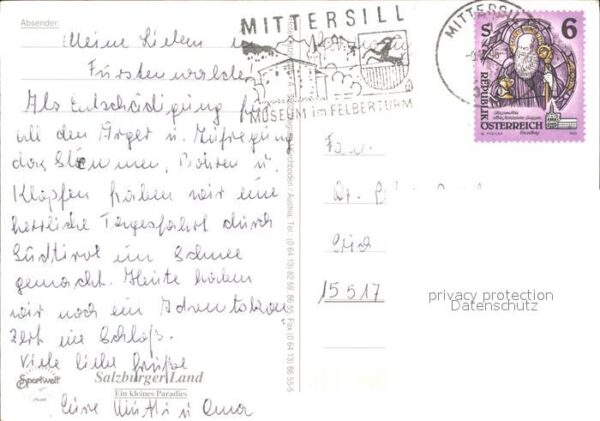 Absender:
Meine Lieben in
Fürstenwalde
Als Entschädigung für
all den Ärger u. Aufregung
das Stemmen, Bohren u.
Klopfen haben wir eine
herrliche Tagesfahrt durch
Südtirol im Schnee
gemacht. Heute haben
wir noch ein Adventskon
zert im Schloß.
Viele liebe Grüße
Eure Mutti u Oma
Sportwelt
Salzburger Land
Ein kleines Paradies
MITTERSILL
MUSEUM im FELBERTURM
MITTERSILL
S 6
REPUBLIK
ÖSTERREICH
Fam.
Dr.
15517
privacy protection
Datenschutz